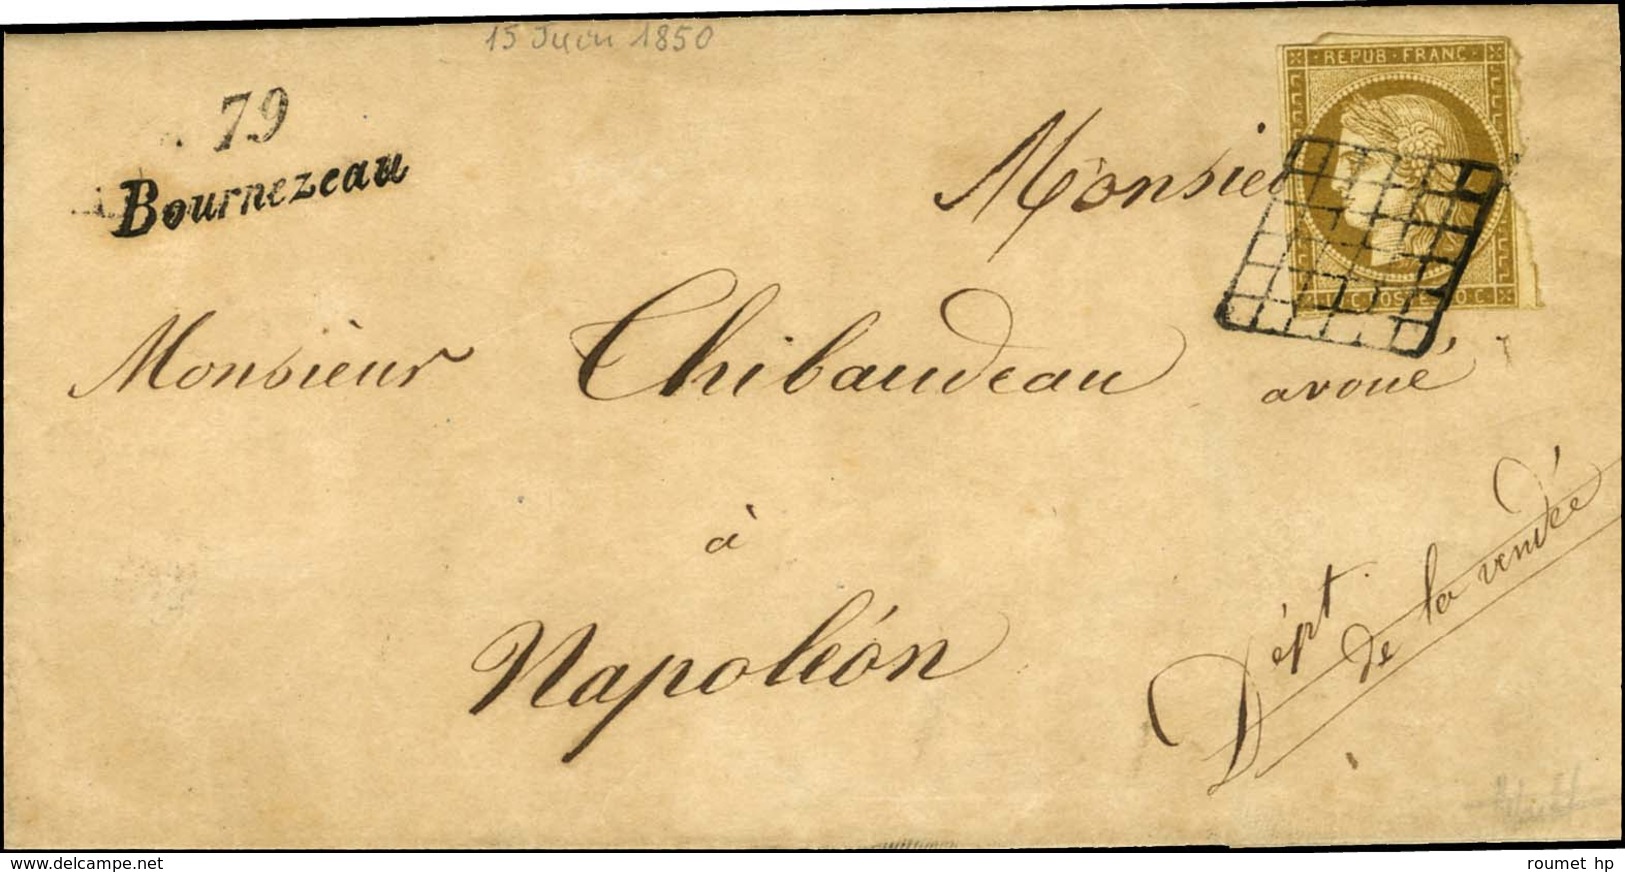 15 Juin 1850
79
Bournezeau
REPUB · FRANC
Monsieu
10 C. POSTE 10 C.
Monsieur Chibaudeau avoué,
à
Napoléon
Dépt
de la vendée
www.delcampe.net
roumet hp